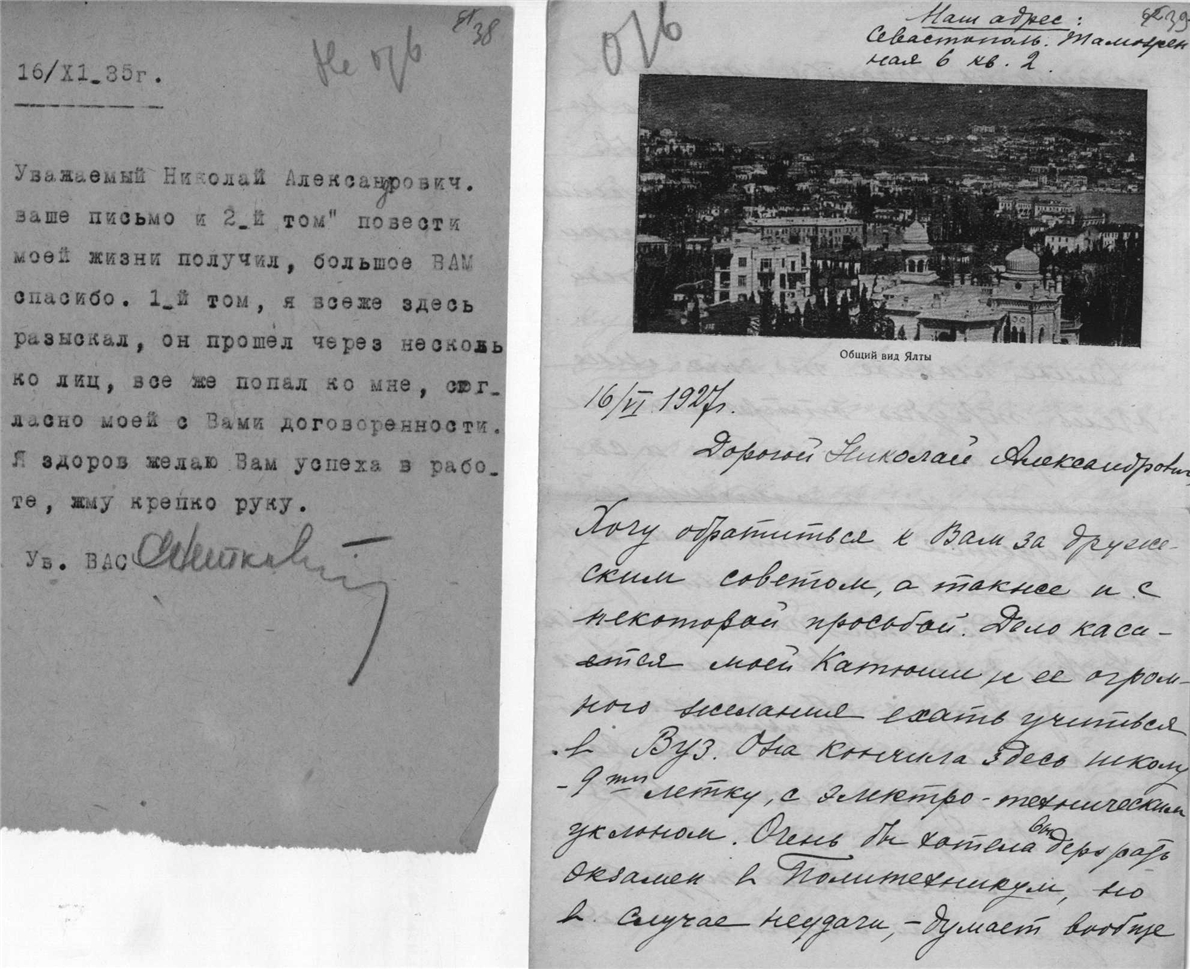 38
Не отв
16/X1_35г.
Уважаемый Николай Александрович.
ваше письмо и 2_й том" повести
моей жизни получил, большое ВАМ
спасибо. 1_й том, я всеже здесь
разыскал, он прошел через несколь
ко лиц, все же попал ко мне, сог_
ласно моей с Вами договоренности.
Я здоров желаю Вам успеха в рабо_
те, жму крепко руку.
Ув. ВАС
отв
39
Наш адрес:
Севастополь. Таможен
ная 6 кв. 2.
Общий вид Ялты
16/VI 1927г.
Дорогой Николай Александрович,
Хочу обратиться к Вам за друже-
ским советом, а также и с
некоторой просьбой. Дело каса-
ется моей Катюши и ее огром-
ного желания ехать учиться
в Вуз. Она кончила здесь школу
-9ти летку, с электро-техническим
уклоном. Очень бы хотела выдержать
экзамен в Политехникум, но
в случае неудачи, - думает вообще